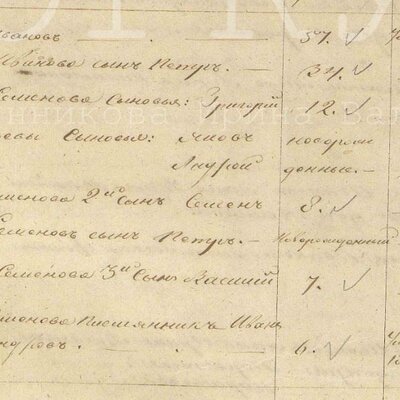 Ивановъ 57.
Иванова сынъ Петръ. — 34.
Семенова Сыновья: Григорій 12.
Сыновья: Яковъ новорож-
Андрей денные. —
Семенова 2й Сынъ Семенъ 8.
Семеновъ сынъ Петръ. — Новорожденный
Семенова 3й Сынъ Василій 7.
Семенова Племянникъ Иванъ
Андровъ. 6.